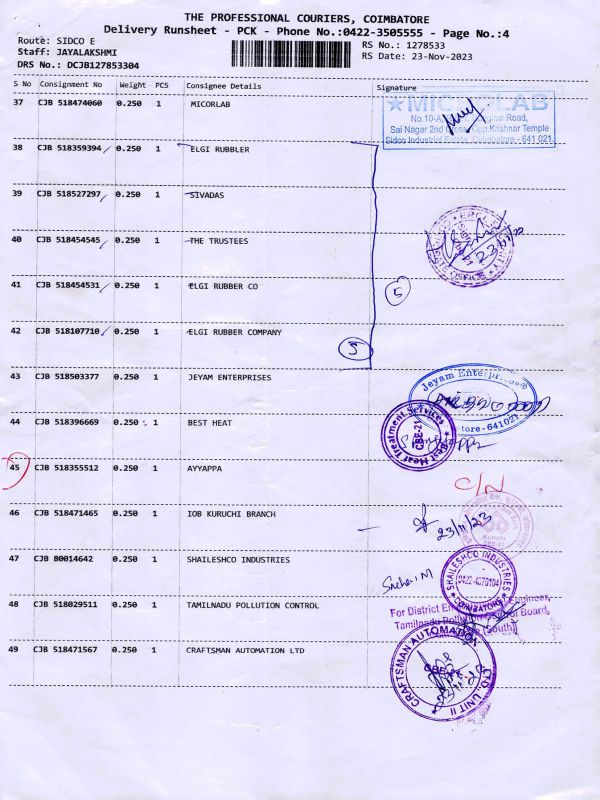 THE PROFESSIONAL COURIERS, COIMBATORE
Delivery Runsheet - PCK - Phone No.:0422-3505555 - Page No.:4
Route: SIDCO E
Staff: JAYALAKSHMI
DRS No.: DCJB127853304
RS No.: 1278533
RS Date: 23-Nov-2023
S No Consignment No Weight PCS Consignee Details Signature
37 CJB 518474060 0.250 1 MICORLAB
★MICROLAB
Road,
Sai Nagar 2nd Cross, Opp.Krishnar Temple
Sidco Industrial Estate, Coimbatore - 641 021
38 CJB 518359394 0.250 1 ELGI RUBBLER
39 CJB 518527297 0.250 1 SIVADAS
40 CJB 518454545 0.250 1 THE TRUSTEES
41 CJB 518454531 0.250 1 ELGI RUBBER CO
5
42 CJB 518107710 0.250 1 ELGI RUBBER COMPANY
5
43 CJB 518503377 0.250 1 JEYAM ENTERPRISES
Jeyam Enterprises®
tore - 641021
44 CJB 518396669 0.250 1 BEST HEAT
★ Best Heat Treatment Services
CBE-21
45 CJB 518355512 0.250 1 AYYAPPA
C/N
46 CJB 518471465 0.250 1 IOB KURUCHI BRANCH
23/11/23
Kurichi
47 CJB 80014642 0.250 1 SHAILESHCO INDUSTRIES
SHAILESHCO INDUSTRIES
COIMBATORE
48 CJB 518029511 0.250 1 TAMILNADU POLLUTION CONTROL
For District Engineer,
Tamilnadu Pollution Control Board,
(South)
49 CJB 518471567 0.250 1 CRAFTSMAN AUTOMATION LTD
CRAFTSMAN AUTOMATION LTD., UNIT II